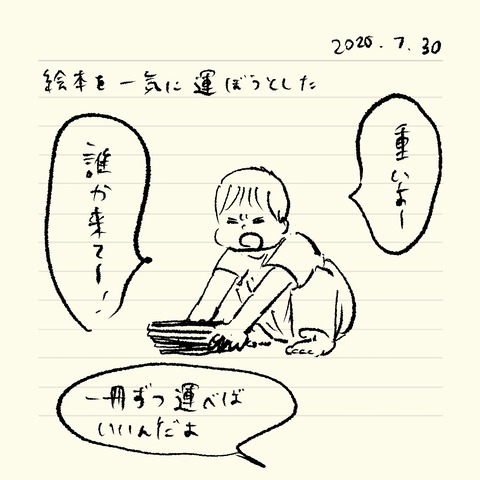 2020.7.30
絵本を一気に運ぼうとした
重いよー
誰か来てー!!
一冊ずつ運べば
いいんだよ